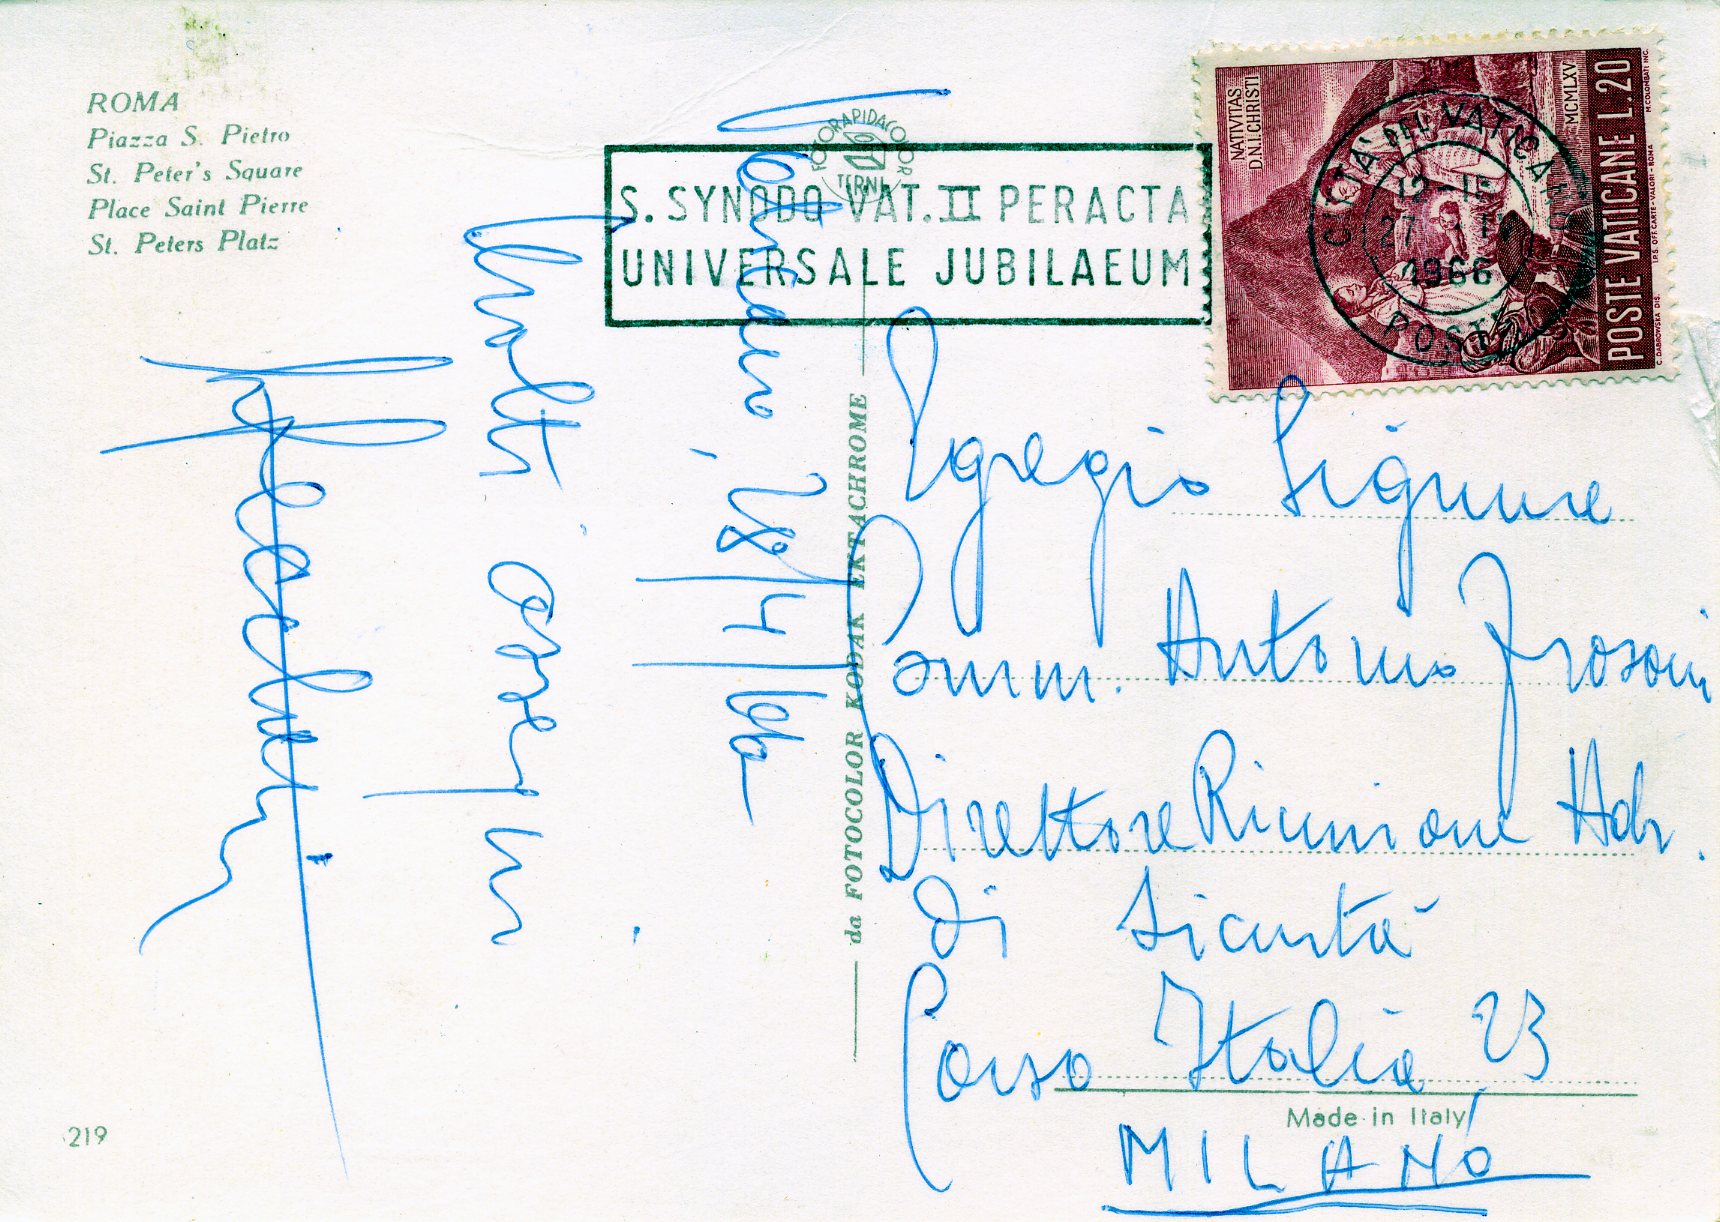 ROMA
Piazza S. Pietro
St. Peter's Square
Place Saint Pierre
St. Peters Platz
FOTORAPIDACOLOR
TERNI
S. SYNODO VAT. II PERACTA
UNIVERSALE JUBILAEUM
NATIVITAS
D.N.I.CHRISTI
MCMLXV
POSTE VATICANE L.20
M.COLOMBATI INC.
C.DABROWSKA DIS.
I.P.S. OFF.CARTE-VALORI-ROMA
CITTA' DEL VATICANO
12-15
27
1966
POSTE
28/4/66
Molti ossequi
da FOTOCOLOR KODAK EKTACHROME
Egregio Signore
Comm. Antonio Frosoni
Direttore Riunione Adr.
di Sicurtà
Corso Italia 23
MILANO
Made in Italy
219